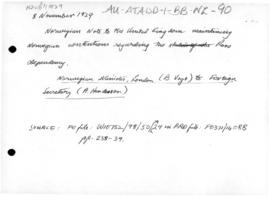 8 November 1929
AU-ATADD-1-BB-NZ-90
Norwegian Note to the United Kingdom maintaining
Norwegian contentions regarding the Ross
dependency.
Norwegian Minister, London (B. Vogt) to Foreign
Secretary (A. Henderson)
SOURCE: FO file: W10752/98/50/29 in PRO file: FO371/
pp. 238-39.